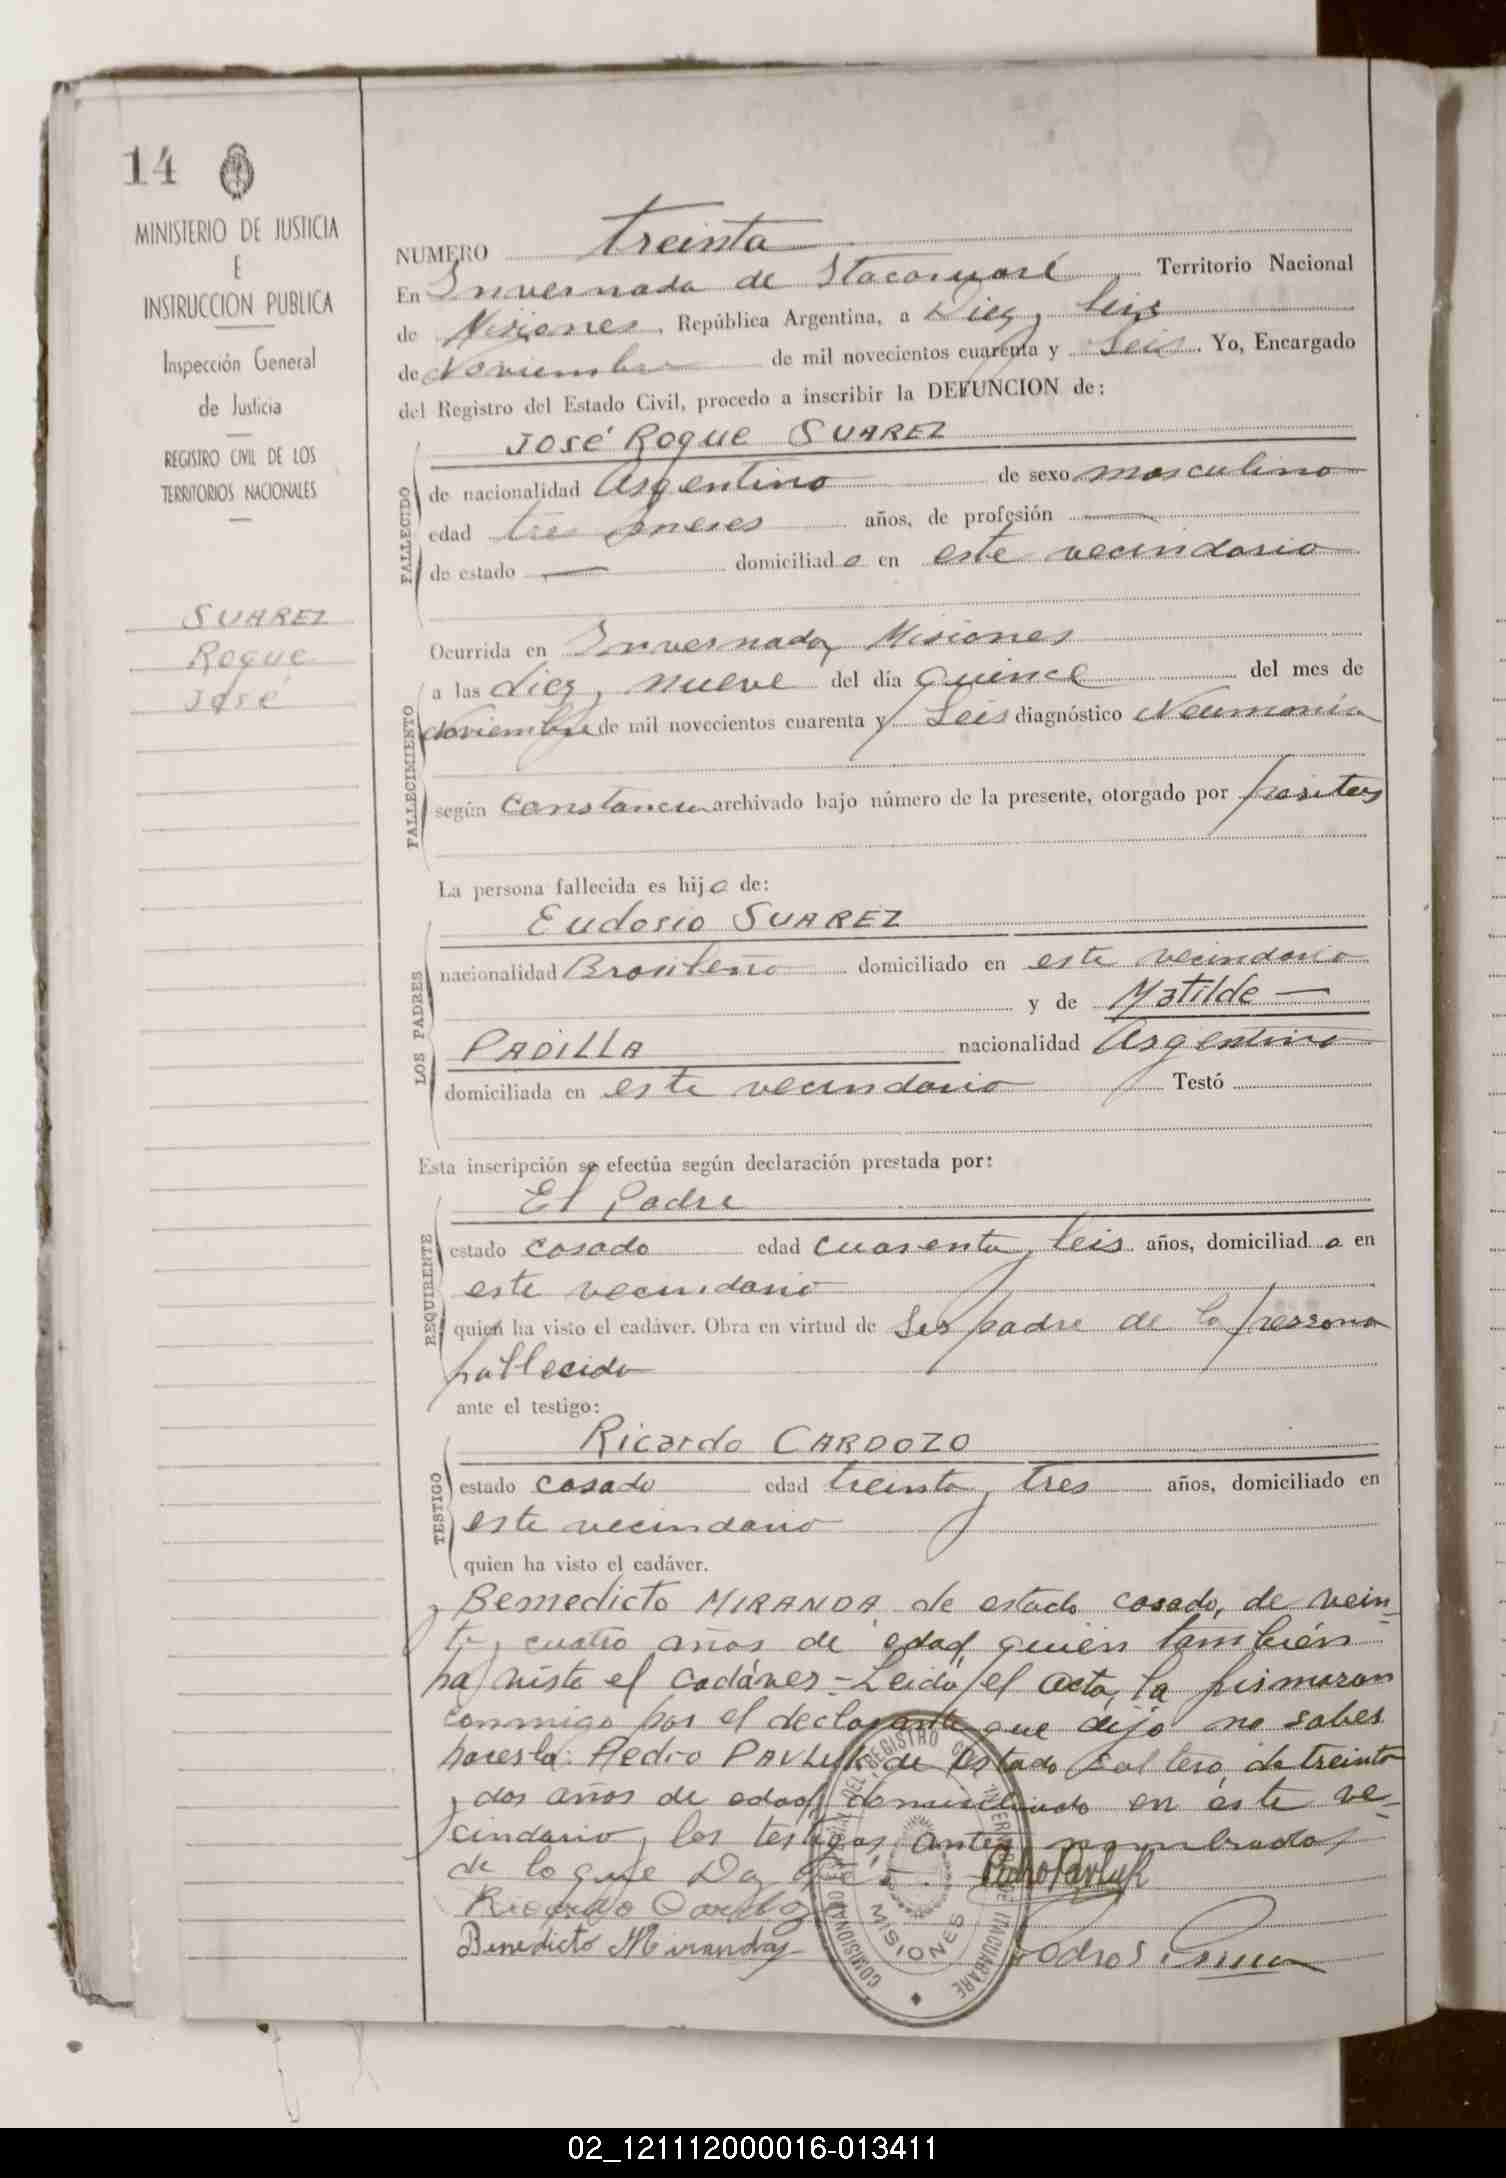 14
MINISTERIO DE JUSTICIA
E
INSTRUCCION PUBLICA
Inspección General
de Justicia
REGISTRO CIVIL DE LOS
TERRITORIOS NACIONALES
SUAREZ
Roque
José
NUMERO treinta
En Invernada de Itacaruaré Territorio Nacional
de Misiones, República Argentina, a Diez y seis
de Noviembre de mil novecientos cuarenta y seis. Yo, Encargado
del Registro del Estado Civil, procedo a inscribir la DEFUNCION de:
JOSÉ ROQUE SUAREZ
FALLECIDO
de nacionalidad Argentino de sexo masculino
edad tres meses años, de profesión —
de estado — domiciliado en este vecindario
FALLECIMIENTO
Ocurrida en Invernada, Misiones
a las diez y nueve del día quince del mes de
Noviembre de mil novecientos cuarenta y seis diagnóstico Neumonía
según constancia archivado bajo número de la presente, otorgado por
La persona fallecida es hijo de:
LOS PADRES
Eudosio SUAREZ
nacionalidad Brasileño domiciliado en este vecindario
y de Matilde —
PADILLA nacionalidad Argentina
domiciliada en este vecindario Testó
Esta inscripción se efectúa según declaración prestada por:
REQUIRENTE
El Padre
estado casado edad cuarenta y seis años, domiciliado en
este vecindario
quien ha visto el cadáver. Obra en virtud de ser padre de la persona
fallecida
ante el testigo:
TESTIGO
Ricardo CARDOZO
estado casado edad treinta y tres años, domiciliado en
este vecindario
quien ha visto el cadáver.
y Benedicto MIRANDA, de estado casado, de vein-
te y cuatro años de edad, quien también
ha visto el cadáver - Leida el acta, la firmaron
conmigo por el declarante que dijo no saber
hacerla: Pedro PAVLUK de estado soltero, de treinta
y dos años de edad, domiciliado en este ve-
cindario y los testigos antes nombrados,
de lo que Doy fé.- Pedro Pavluk
Ricardo Cardozo
Benedicto Miranda
Pedro S.
COMISIONADO DEL REGISTRO CIVIL
MISIONES
02_121112000016-013411